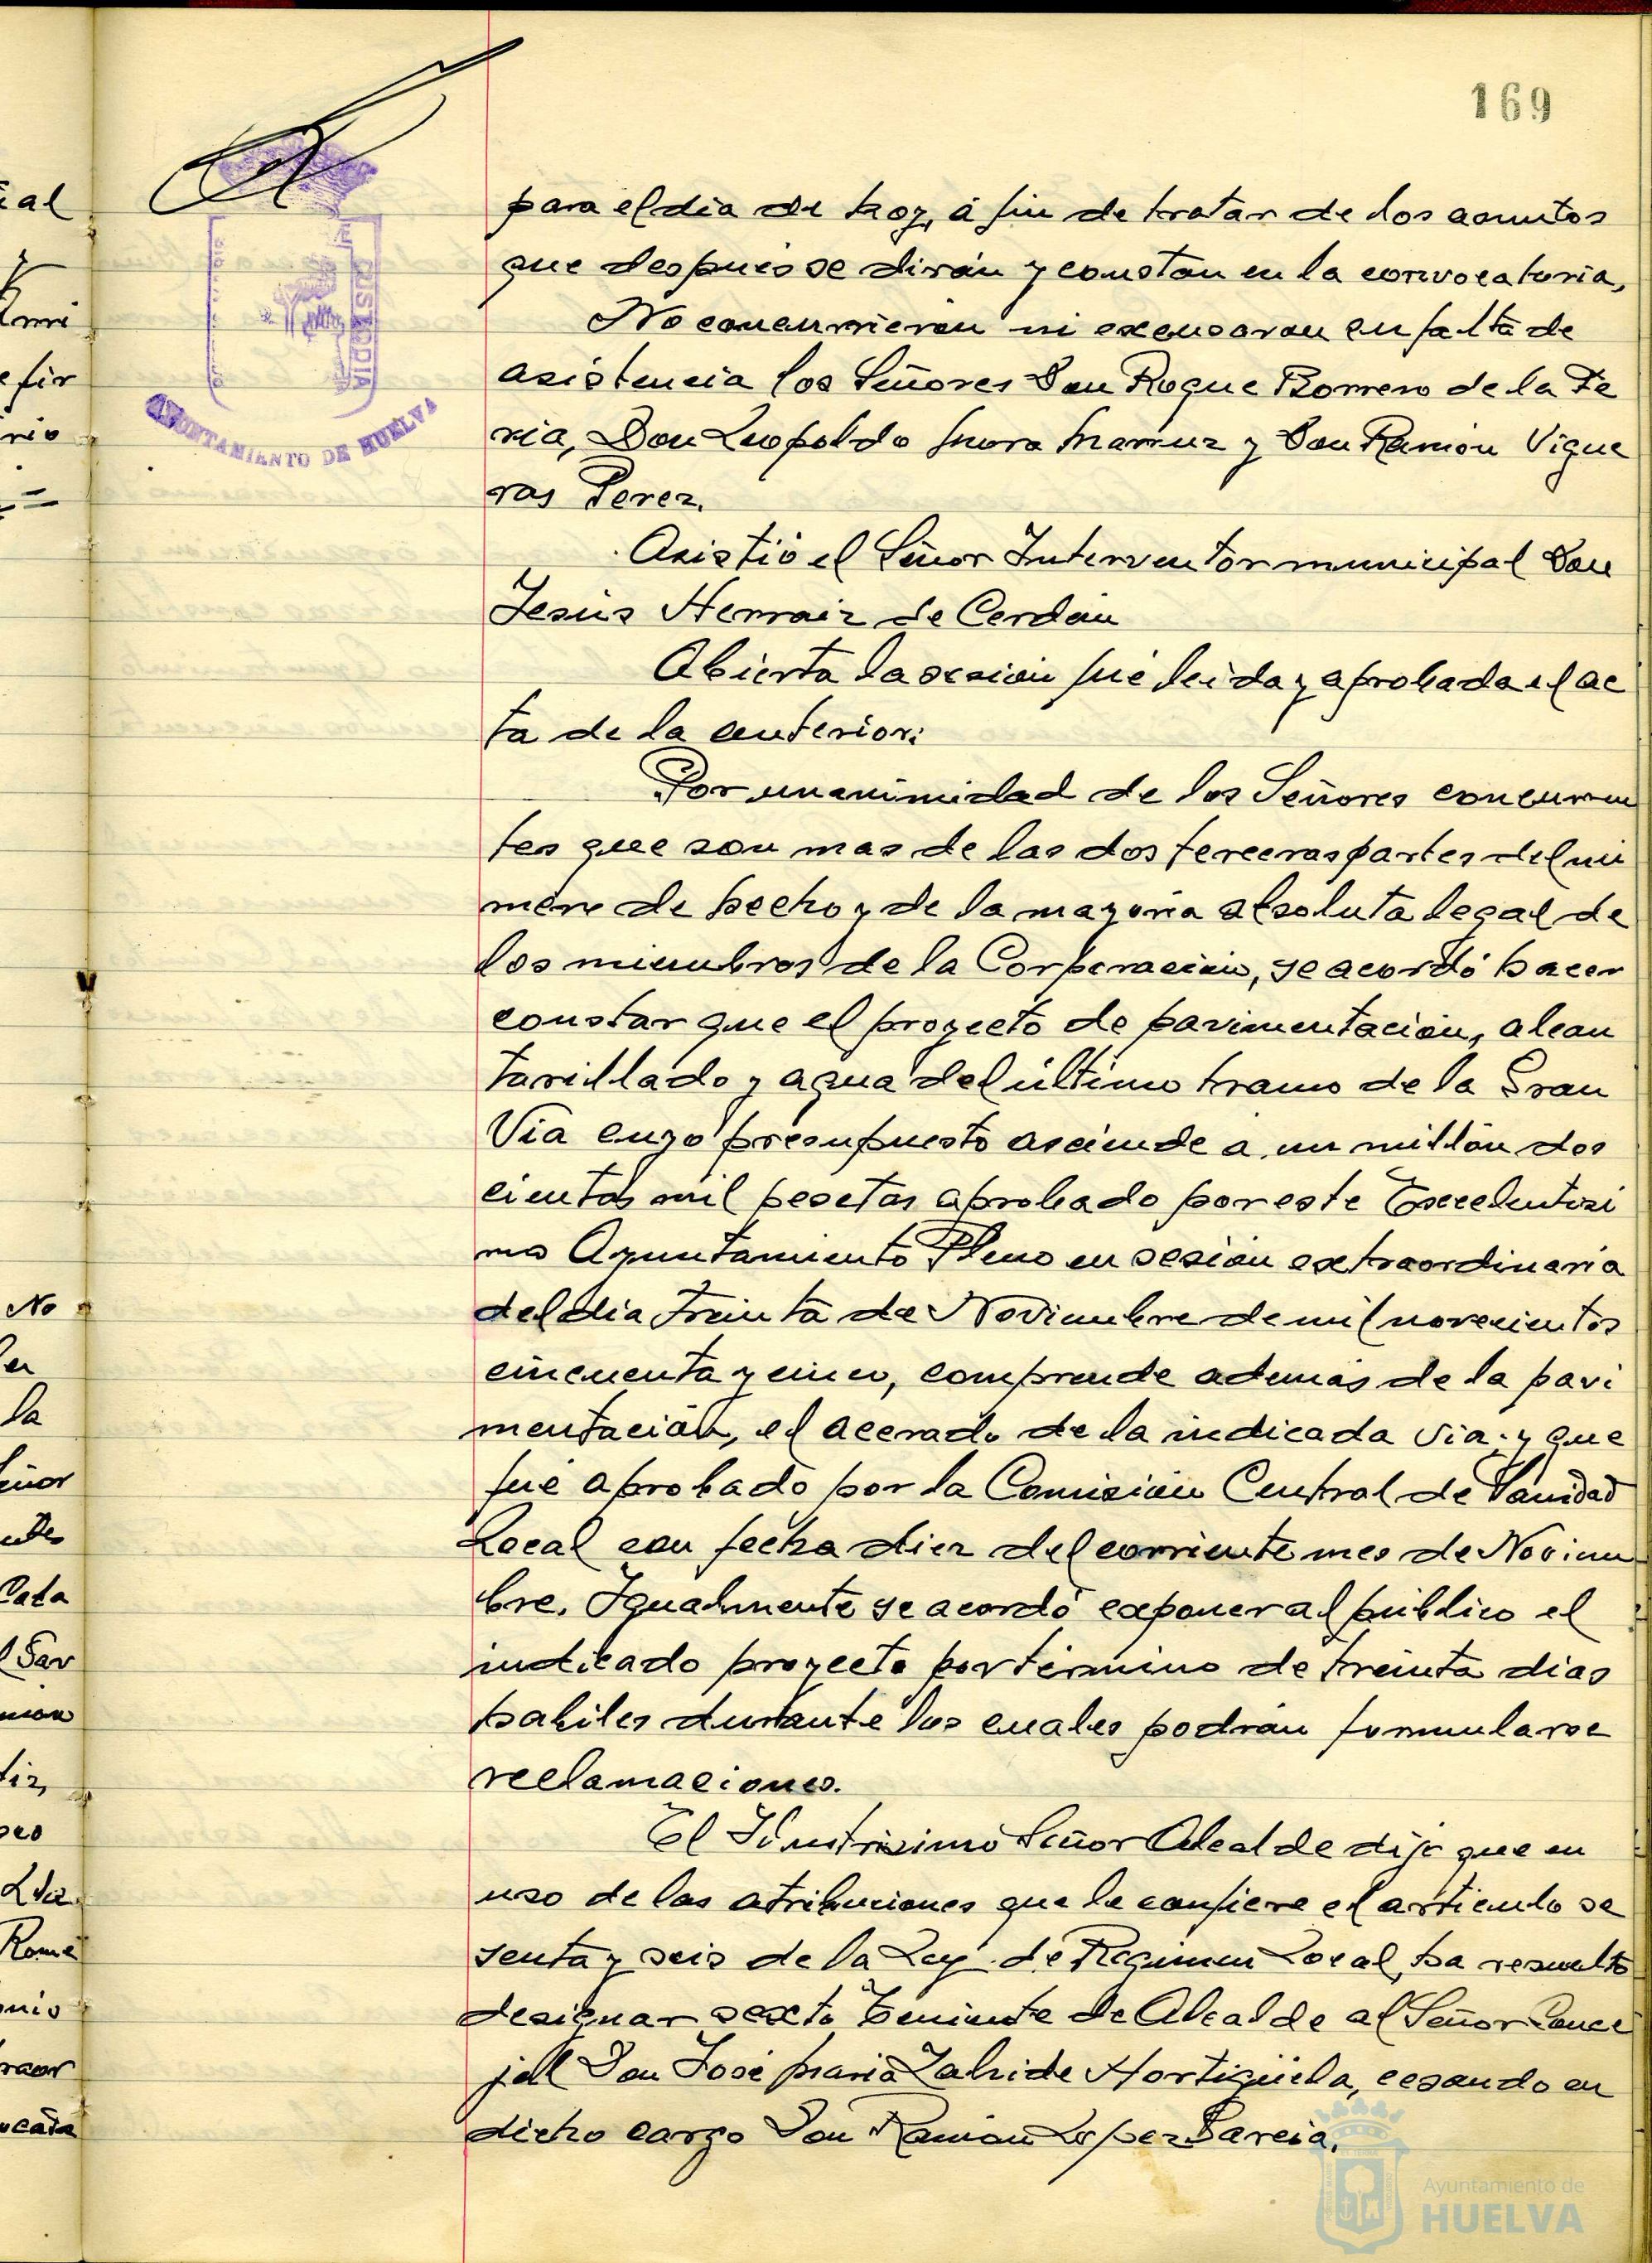 169
para el dia de hoy, á fin de tratar de los asuntos
que despues se dirán y constan en la convocatoria,
No concurrieron ni excusaron su falta de
asistencia los Señores Don Roque Borrero de la Fe
ria, Don Leopoldo Mora y Don Ramón Vigue
ras Perez.
Asistió el Señor Interventor municipal Don
Jesús Herraiz de Cerdán
Abierta la sesión fué leida y aprobada el ac
ta de la anterior:
Por unanimidad de los Señores concurren
tes que son mas de las dos terceras partes del nú
mero de hecho y de la mayoria absoluta legal de
los miembros de la Corporación, se acordó hacer
constar que el proyecto de pavimentación, alcan
tarillado y agua del último tramo de la Gran
Via cuyo presupuesto asciende a un millón dos
cientas mil pesetas aprobado por este Excelentisi
mo Ayuntamiento Pleno en sesión extraordinaria
del dia treinta de Noviembre de mil novecientos
cincuenta y cinco, comprende además de la pavi
mentación, el acerado de la indicada via y que
fué aprobado por la Comisión Central de Sanidad
Local con fecha diez del corriente mes de Noviem
bre. Igualmente se acordó exponer al público el
indicado proyecto por término de treinta dias
habiles durante los cuales podrán formularse
reclamaciones.
El Ilustrisimo Señor Alcalde dijo que en
uso de las atribuciones que le confiere el articulo se
senta y seis de la Ley de Regimen Local, ha resuelto
designar sexto Teniente de Alcalde al Señor Conce
jal Don José Maria Zalvide Hortigüela, cesando en
dicho cargo Don Ramón Lopez Garcia.
AYUNTAMIENTO DE HUELVA
CUSTODIA
ial
fir
rio
No
la
eñor
Cata
Gar
Rome
nio
Ayuntamiento de
HUELVA